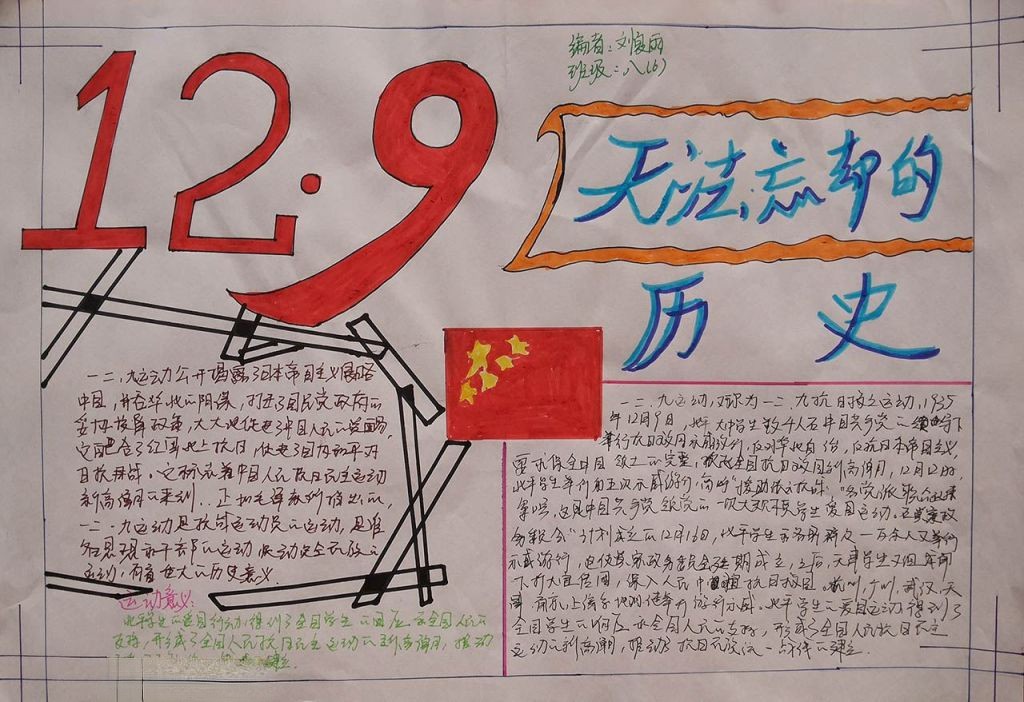 12.9
编者:刘良丽
班级:八(6)
无法忘却的
历史
一二.九运动公开揭露了日本帝国主义侵略
中国,并吞华北的阴谋,打击了国民党政府的
妥协投降政策,大大地促进了中国人民的觉醒
它配合了红军北上抗日,促进了国内和平和
对日抗战。它标志着中国人民抗日民主运动
新高潮的来到
一二.九运动是抗战运动员的运动,是准
备思想和干部的运动 是动员全民族的
运动,有着重大的历史意义.
运动意义:
北平学生的爱国行动,得到了全国学生的响应和全国人民的
支持,形成了全国人民抗日民主运动的新高潮,推动
建立
一二.九运动,又称为一二.九抗日救亡运动,1935
年12月9日,北平大中学生数千人在中国共产党的领导下
举行抗日救国示威游行,反对华北自治,反抗日本帝国主义,
要求保全中国领土的完整,掀起全国抗日救国新高潮,12月12日
北平学生举行第五次示威游行,高呼"援助绥远抗战"
等口号,这是中国共产党领导的一次大规模学生爱国运动.
定于12月16日,北平学生和各界群众一万余人又举行
示威游行,迫使冀察政务委员会延期成立,之后,天津学生又组成南
下扩大宣传团,深入人民中宣传抗日救国。杭州,广州,武汉,天
津,南京,上海等地相继举行游行示威。北平学生的爱国运动得到了
全国学生的响应和全国人民的支持,形成了全国人民抗日民主
运动的新高潮,推动了抗日民族统一战线的建立.